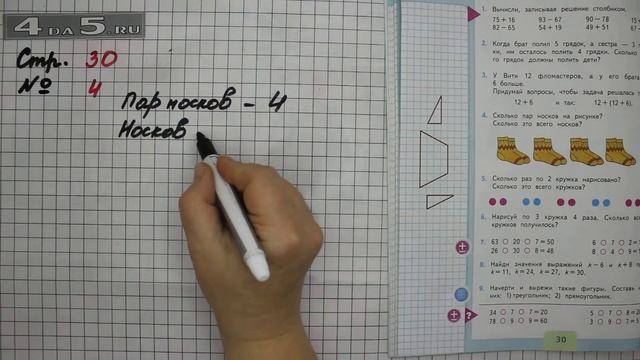 4DA5.RU
Стр. 30
№ 4
Пар носков – 4
Носков
1. Вычисли, записывая решение столбиком.
75 + 16 93 − 67 90 − 78
82 − 65 54 + 19 49 + 51
2. Когда брат полил 5 грядок, а сестра — 3
ки, им осталось полить 4 грядки. Сколько
грядок должны полить дети?
3. У Вити 12 фломастеров, а у его
6 больше.
Придумай вопросы, чтобы задача решалась
12 + 6 и так: 12 + (12 + 6).
4. Сколько пар носков на рисунке?
Сколько это всего носков?
5. Сколько раз по 2 кружка нарисовано?
Сколько это всего кружков?
6. Нарисуй по 3 кружка 4 раза. Сколько
кружков получилось?
7. 63 ○ 20 ○ 7 = 50 6 ○ 7 ○ 2 =
26 ○ 30 ○ 8 = 48 8 ○ 4 ○ 9 =
8. Найди значения выражений k − 6 и k + 8
k = 11, k = 24, k = 27, k = 30.
9. Начерти и вырежи такие фигуры. Составь
них: 1) треугольник; 2) прямоугольник.
34 ○ 7 ○ 7 = 20 5 ○ 7 ○ 8 =
78 ○ 9 ○ 9 = 60 3 ○ 9 ○ 7 =
30